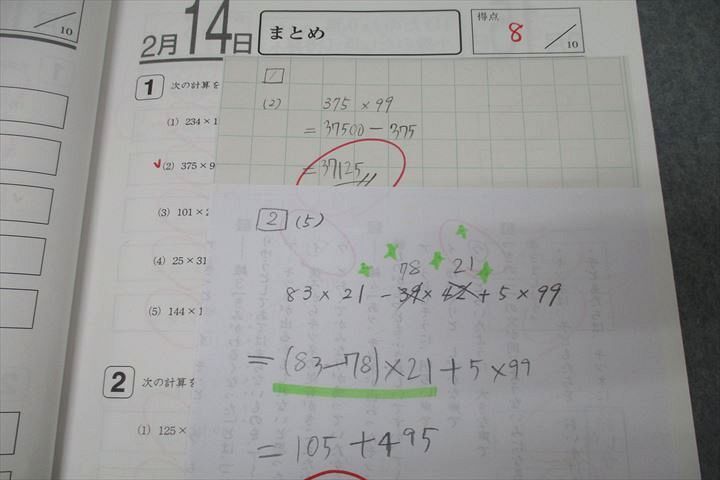 /10
2月14日
まとめ
得点
8/10
1 次の計算を
(1) 234×1
(2) 375×9
(3) 101×2
(4) 25×31
(5) 144×1
2 次の計算を
(1) 125×
1
(2) 375×99
=37500-375
=37125
2 (5)
78 21
83×21-39×42+5×99
=(83-78)×21+5×99
=105+495